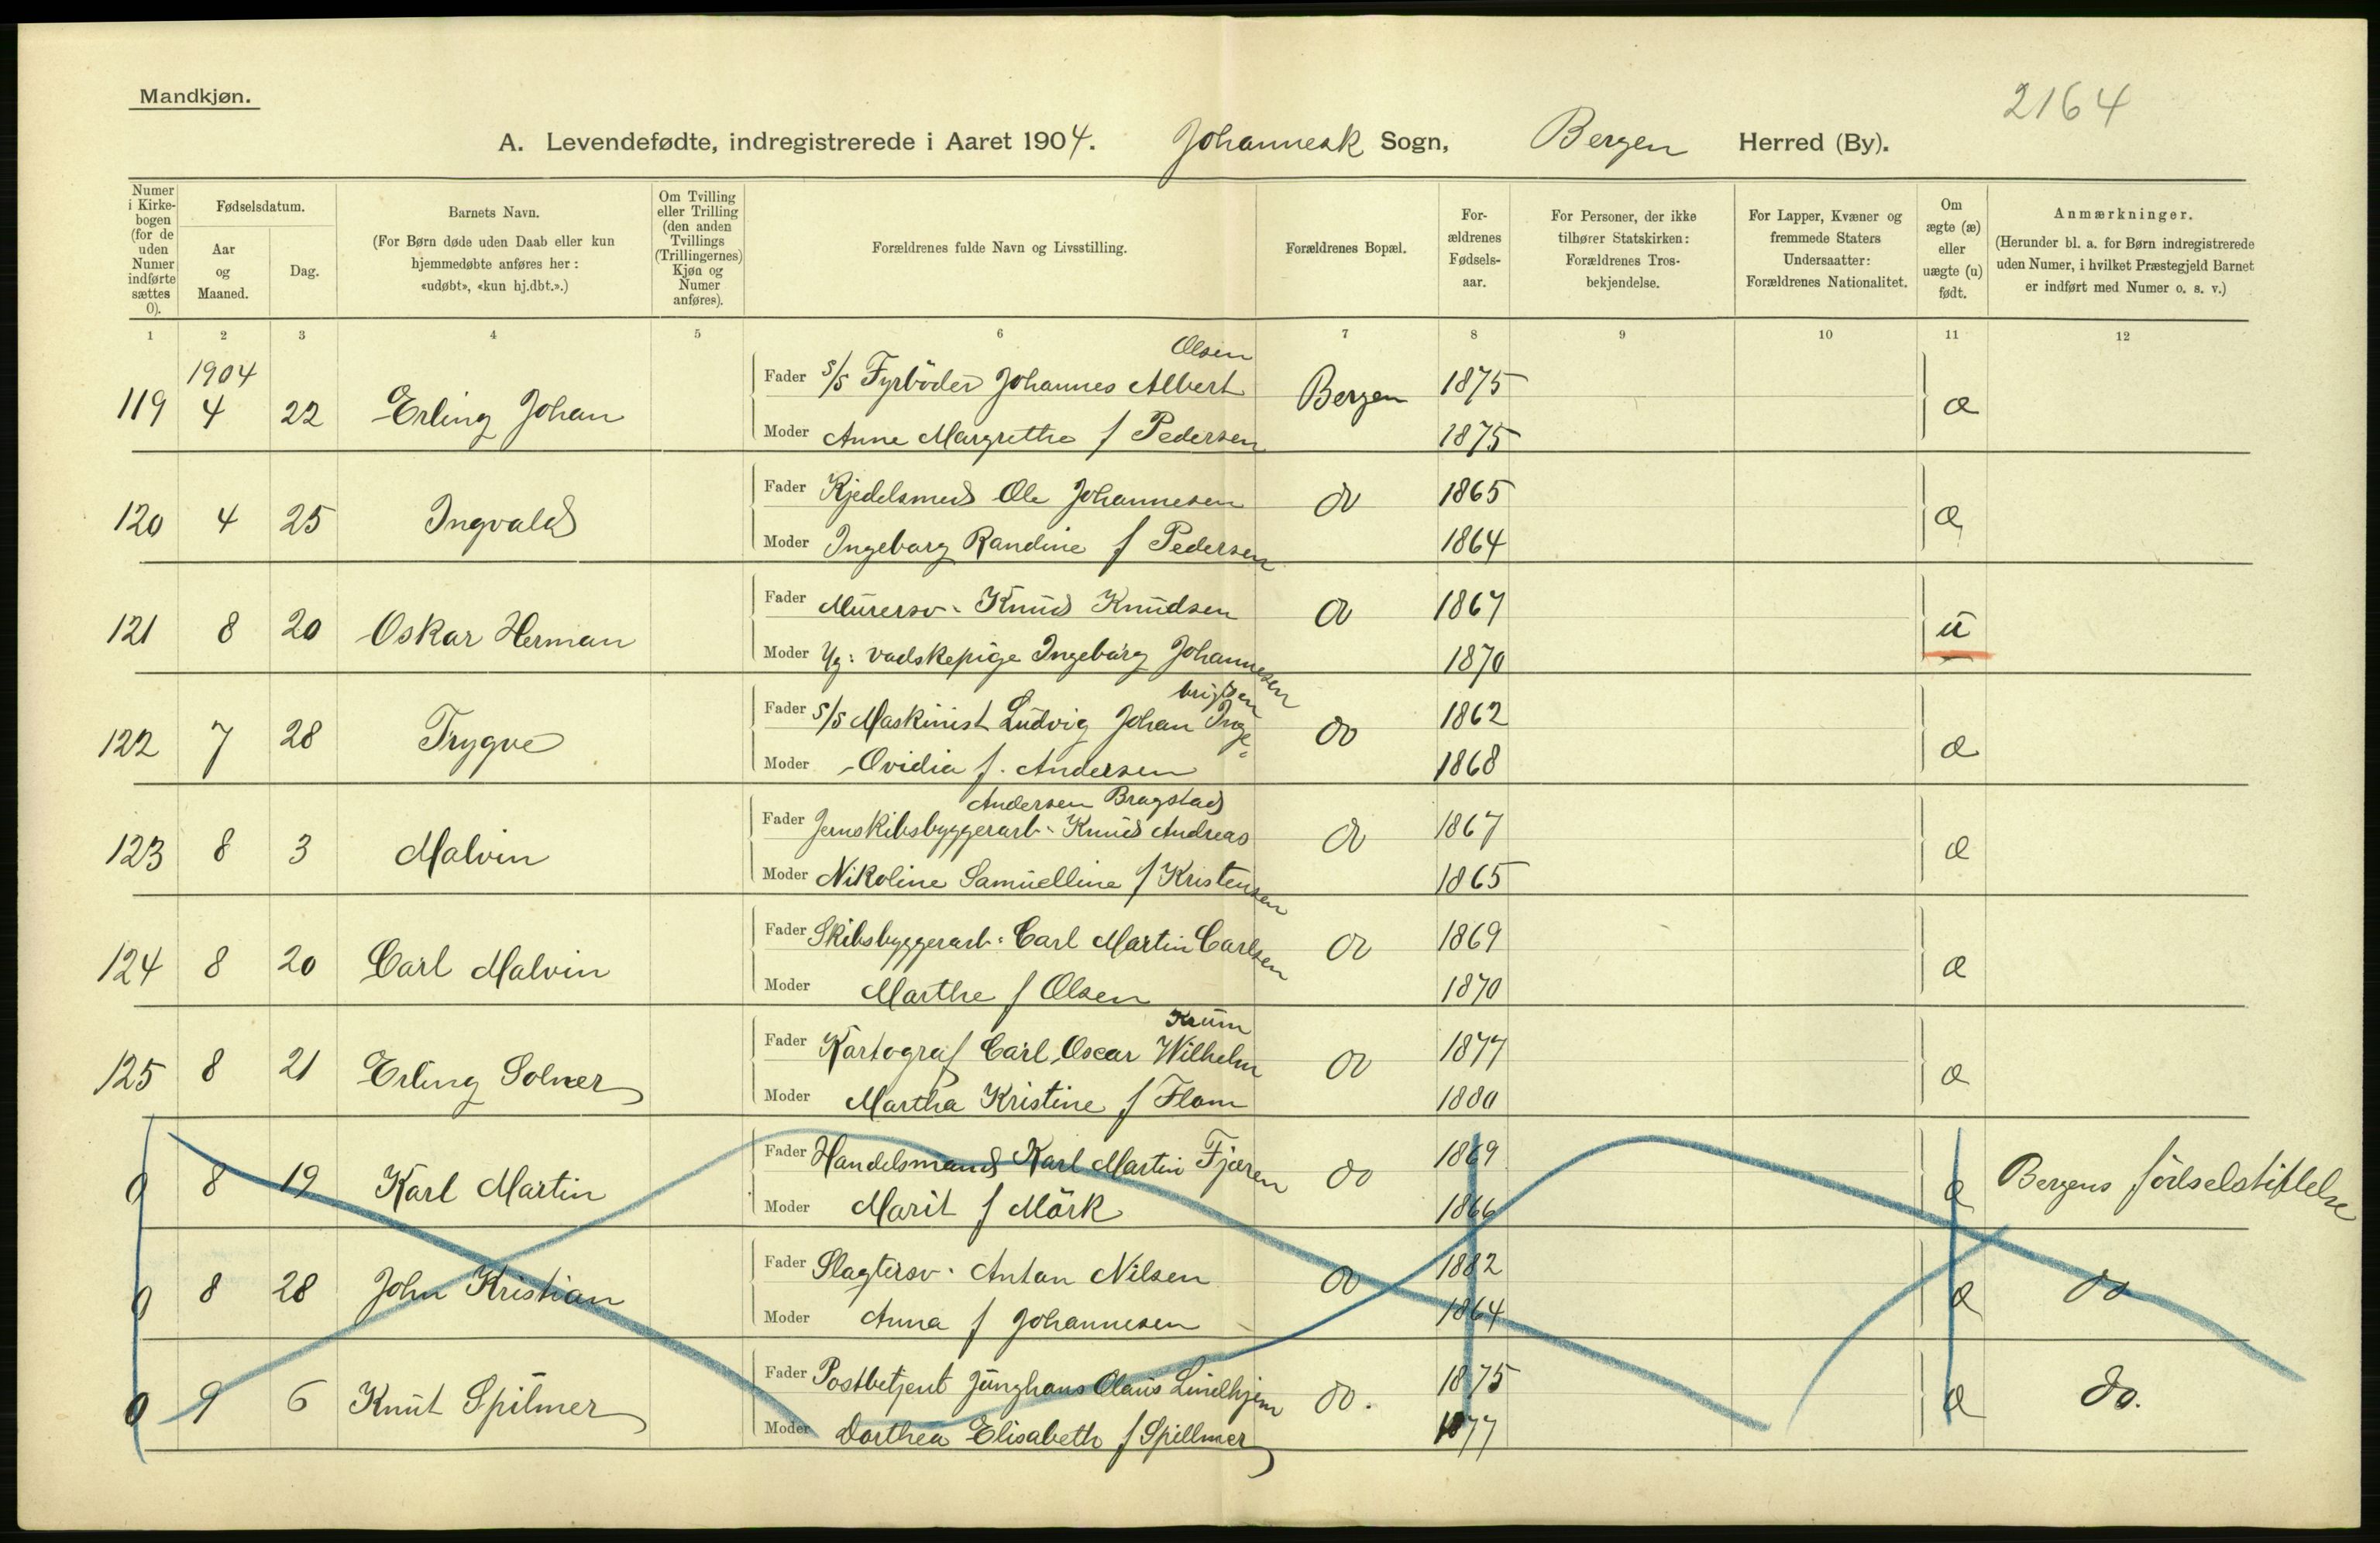 Mandkjøn.
2164
A. Levendefødte, indregistrerede i Aaret 1904. Johannesk Sogn, Bergen Herred (By).
Numer i Kirkebogen (for de uden Numer indførte sættes 0).
Fødselsdatum.
Aar og Maaned.
Dag.
Barnets Navn.
(For Børn døde uden Daab eller kun hjemmedøbte anføres her: «udøbt», «kun hj.dbt.».)
Om Tvilling eller Trilling (den anden Tvillings (Trillingernes) Kjøn og Numer anføres).
Forældrenes fulde Navn og Livsstilling.
Forældrenes Bopæl.
For-ældrenes Fødsels-aar.
For Personer, der ikke tilhører Statskirken: Forældrenes Tros-bekjendelse.
For Lapper, Kvæner og fremmede Staters Undersaatter: Forældrenes Nationalitet.
Om ægte (æ) eller uægte (u) født.
Anmærkninger.
(Herunder bl. a. for Børn indregistrerede uden Numer, i hvilket Præstegjeld Barnet er indført med Numer o. s. v.)
1 2 3 4 5 6 7 8 9 10 11 12
1904
Olsen
119 4 22 Erling Johan Fader S/S Fyrböder Johannes Albert Bergen 1875 æ
Moder Anne Margrethe f Pedersen 1875
120 4 25 Ingvald Fader Kjedelsmed Ole Johannesen do 1865 æ
Moder Ingeborg Randine f Pedersen 1864
121 8 20 Oskar Herman Fader Murersv. Knud Knudsen do 1867 u
Moder Ug: vadskepige Ingeborg Johannesen 1870
brigtsen
122 7 28 Trygve Fader S/S Maskinist Ludvig Johan Inge- do 1862 æ
Moder Ovidia f. Andersen 1868
Andersen Bragstad
123 8 3 Malvin Fader Jernskibsbyggerarb. Knud Andreas do 1867 æ
Moder Nikoline Samuelline f Kristensen 1865
124 8 20 Carl Malvin Fader Skibsbyggerarb: Carl Martin Carlsen do 1869 æ
Moder Marthe f Olsen 1870
Krum
125 8 21 Erling Solner Fader Kartograf Carl Oscar Wilhelm do 1877 æ
Moder Martha Kristine f Flom 1880
0 8 19 Karl Martin Fader Handelsmand Karl Martin Fjæren do 1869 æ Bergens födselstiftelse
Moder Marit f Mörk 1866
0 8 28 John Kristian Fader Slagtersv. Anton Nilsen do 1882 æ do
Moder Anna f Johannesen 1864
0 9 6 Knut Spilmer Fader Postbetjent Junghans Claus Lindhjem do. 1875 æ do.
Moder Dorthea Elisabeth f Spillmer 1877